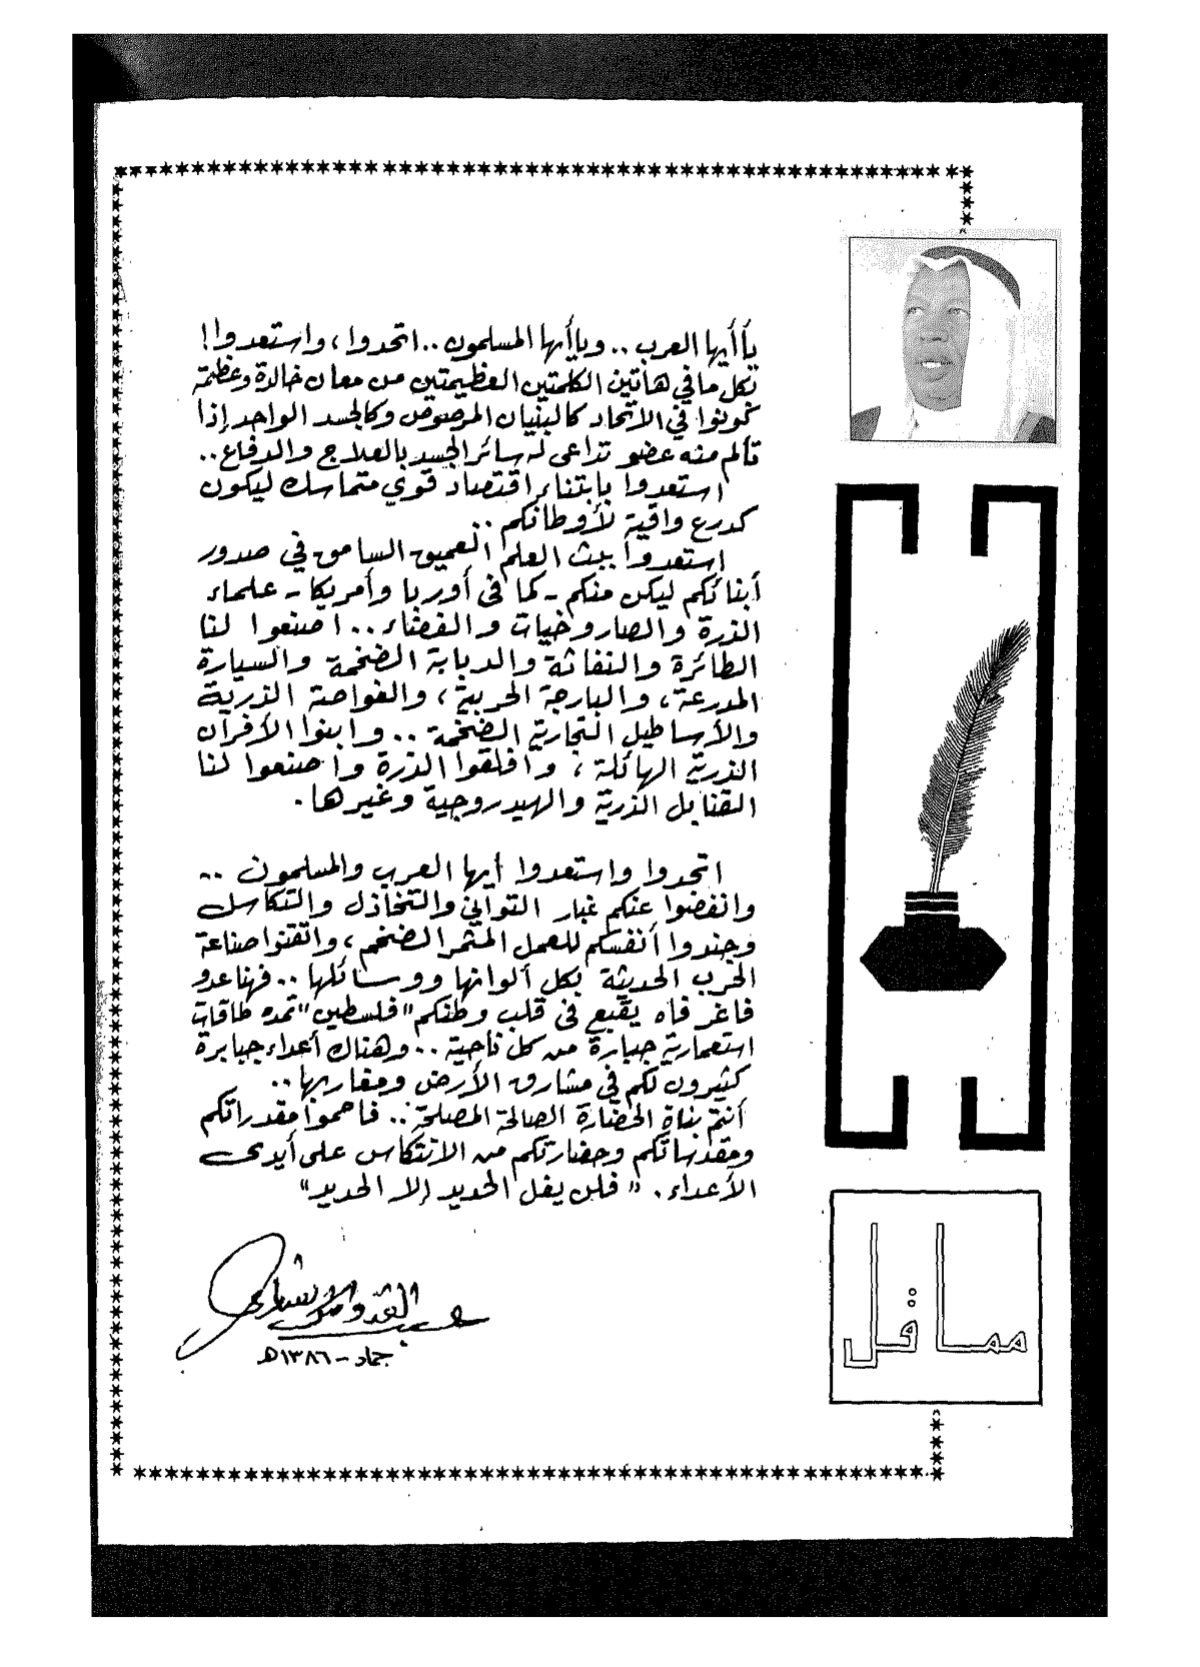 يا أيها العرب.. ويا أيها المسلمون.. اتحدوا، واستعدوا!
بكل ما في هاتين الكلمتين العظيمتين من معان خالدة وعظيمة
كونوا في الاتحاد كالبنيان المرصوص وكالجسد الواحد إذا
تألم منه عضو تداعى له سائر الجسد بالعلاج والدفاع..
استعدوا بابتناء اقتصاد قوي متماسك ليكون
كدرع واقية لأوطانكم..
استعدوا ببث العلم العميق السامق في صدور
أبنائكم ليكن منكم - كما في أوربا وأمريكا - علماء
الذرة والصاروخيات والفضاء.. اصنعوا لنا
الطائرة والنفاثة والدبابة الضخمة والسيارة
المدرعة، والبارجة الحربية، والغواصة الذرية
والأساطيل التجارية الضخمة.. وابنوا الأفران
الذرية الهائلة، وافلقوا الذرة واصنعوا لنا
القنابل الذرية والهيدروجية وغيرها.
اتحدوا واستعدوا أيها العرب والمسلمون..
وانفضوا عنكم غبار التواني والتخاذل والتكاسل
وجندوا أنفسكم للعمل المثمر الضخم، واتقنوا صناعة
الحرب الحديثة بكل ألوانها ووسائلها.. فهنا عدو
فاغر فاه يقبع في قلب وطنكم "فلسطين" تمده طاقات
استعمارية جبارة من كل ناحية.. وهناك أعداء جبابرة
كثيرون لكم في مشارق الأرض ومغاربها..
أنتم بناة الحضارة الصالحة المصلحة.. فاحموا مقدراتكم
ومقدساتكم وحضارتكم من الانتكاس على أيدى
الأعداء. "فلن يفل الحديد إلا الحديد"
عبد القدوس الأنصاري
جماد - ١٣٨٦هـ